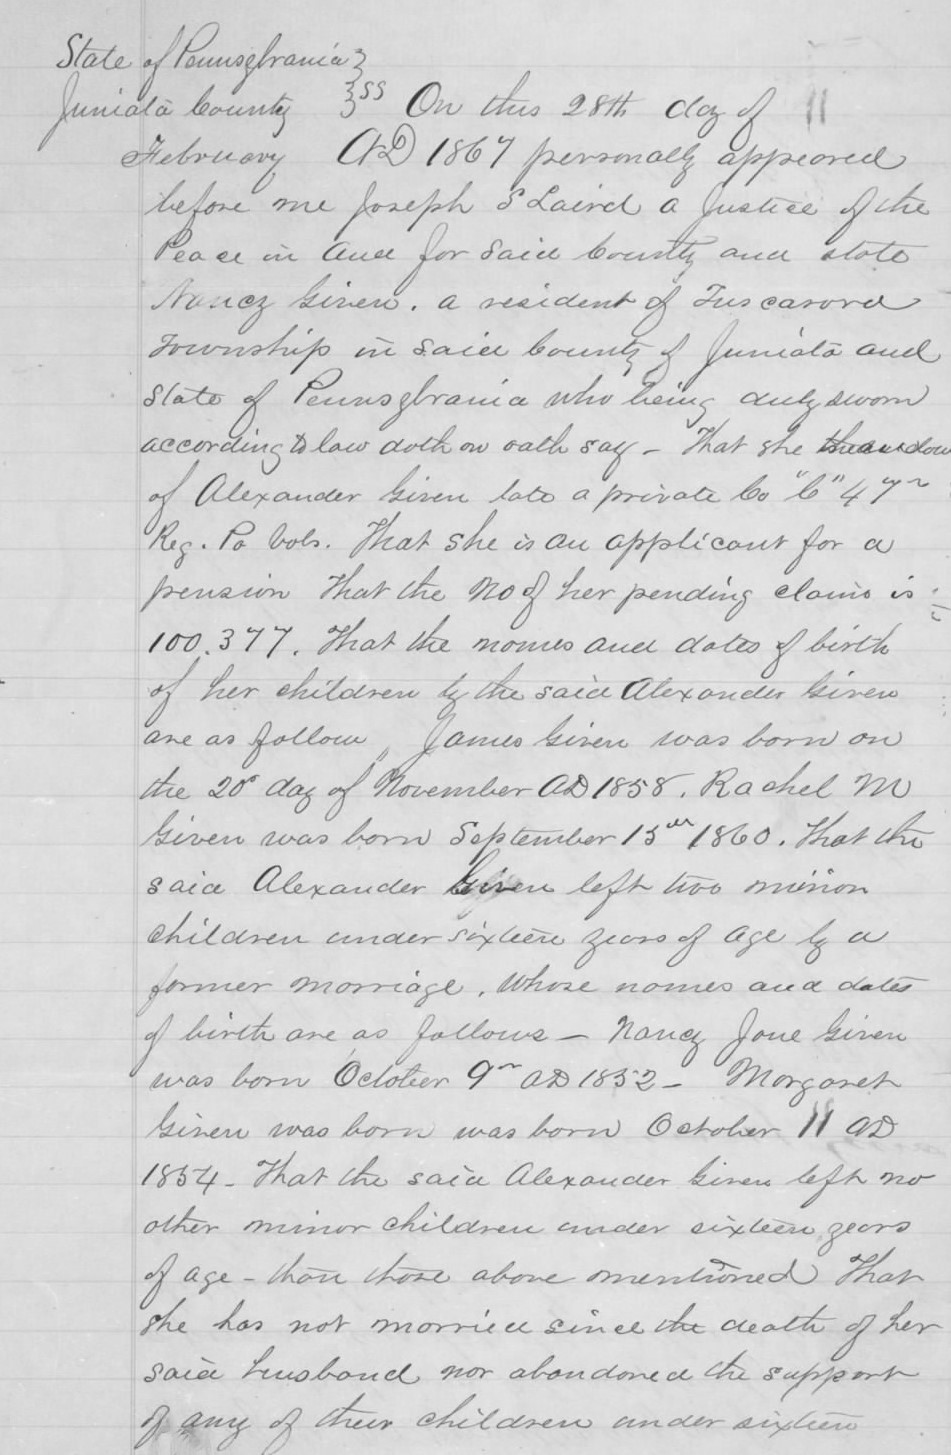 State of Pennsylvania }
Juniata County } SS On this 28th day of
February AD 1867 personally appeared
before me Joseph S Laird a Justice of the
Peace in and for said County and state
Nancy Given. a resident of Tuscarora
Township in said County of Juniata and
State of Pennsylvania who being duly sworn
according to law doth on oath say - That she
of Alexander Given late a private Co "C" 47th
Reg. Pa Vols. That she is an applicant for a
pension That the No of her pending claim is
100.377. That the names and dates of birth
of her children by the said Alexander Given
are as follow, James Given was born on
the 20th day of November AD 1858. Rachel M
Given was born September 15th 1860. That the
said Alexander Given left two minor
children under sixteen years of age by a
former marriage. Whose names and dates
of birth are as follows - Nancy Jane Given
was born October 9th AD 1852 - Margaret
Given was born was born October 11 AD
1854 - That the said Alexander Given left no
other minor children under sixteen years
of age - than those above mentioned That
she has not married since the death of her
said husband nor abandoned the support
of any of their children under sixteen